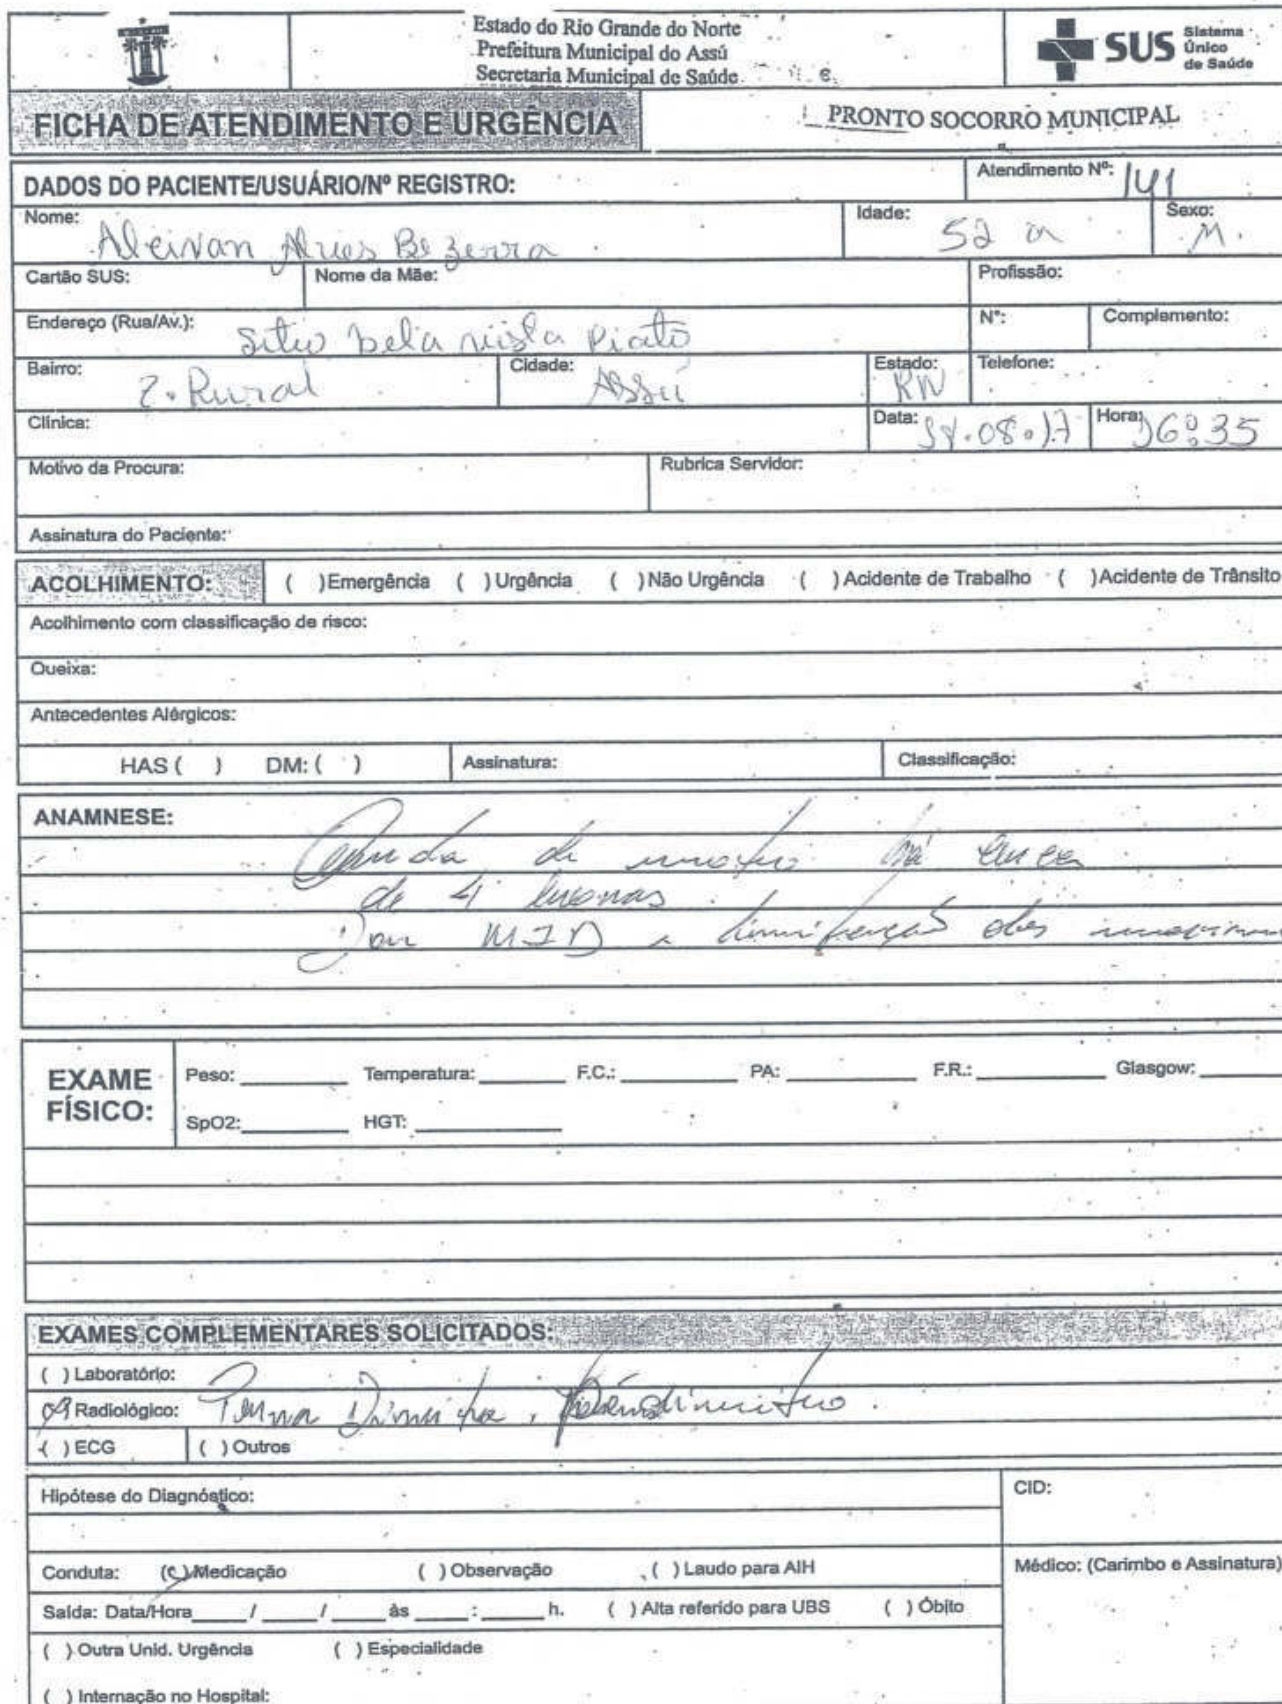 Estado do Rio Grande do Norte
Prefeitura Municipal do Assú
Secretaria Municipal de Saúde
SUS Sistema Único de Saúde
FICHA DE ATENDIMENTO E URGÊNCIA
PRONTO SOCORRO MUNICIPAL
DADOS DO PACIENTE/USUÁRIO/Nº REGISTRO: Atendimento Nº: 141
Nome: Alcivan Alves Bezerra Idade: 52 a Sexo: M.
Cartão SUS: Nome da Mãe: Profissão:
Endereço (Rua/Av.): Sitio bela vista Piató Nº: Complemento:
Bairro: Z. Rural Cidade: Assú Estado: RN Telefone:
Clínica: Data: .08.17 Hora: 16:35
Motivo da Procura: Rubrica Servidor:
Assinatura do Paciente:
ACOLHIMENTO: ( ) Emergência ( ) Urgência ( ) Não Urgência ( ) Acidente de Trabalho ( ) Acidente de Trânsito
Acolhimento com classificação de risco:
Queixa:
Antecedentes Alérgicos:
HAS ( ) DM: ( ) Assinatura: Classificação:
ANAMNESE:
Queda de moto há cerca
de 4 horas.
Dor MID e limitação dos
EXAME FÍSICO: Peso: Temperatura: F.C.: PA: F.R.: Glasgow:
SpO2: HGT:
EXAMES COMPLEMENTARES SOLICITADOS:
( ) Laboratório:
Radiológico: Perna Direita,
( ) ECG ( ) Outros
Hipótese do Diagnóstico: CID:
Conduta: Medicação ( ) Observação ( ) Laudo para AIH Médico: (Carimbo e Assinatura)
Saída: Data/Hora / / às : h. ( ) Alta referido para UBS ( ) Óbito
( ) Outra Unid. Urgência ( ) Especialidade
( ) Internação no Hospital: